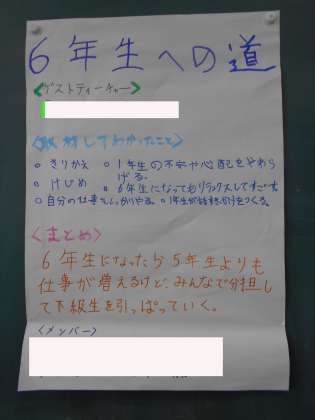 6年生への道
<ゲストティーチャー>
<取材してわかったこと>
○きりかえ ○1年生の不安や心配をやわらげる。
○けじめ ○6年生になってもリラックスしてすごす。
○自分の仕事をしっかりやる。○1年生が
<まとめ>
6年生になったら5年生よりも
仕事が増えるけど、みんなで分担し
て下級生を引っぱっていく。
<メンバー>